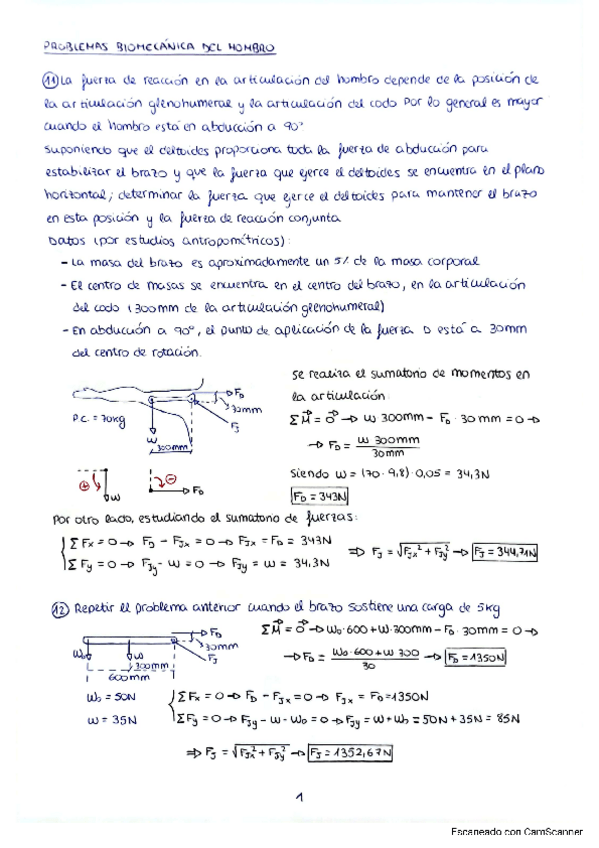 PROBLEMAS BIOMECÁNICA DEL HOMBRO
11 La fuerza de reacción en la articulación del hombro depende de la posición de
la articulación glenohumeral y la articulación del codo. Por lo general es mayor
cuando el hombro está en abducción a 90º
Suponiendo que el deltoides proporciona toda la fuerza de abducción para
estabilizar el brazo y que la fuerza que ejerce el deltoides se encuentra en el plano
horizontal; determinar la fuerza que ejerce el deltoides para mantener el brazo
en esta posición y la fuerza de reacción conjunta
Datos (por estudios antropométricos):
- La masa del brazo es aproximadamente un 5% de la masa corporal
- El centro de masas se encuentra en el centro del brazo, en la articulación
del codo (300mm de la articulación glenohumeral)
- En abducción a 90º, el punto de aplicación de la fuerza D está a 30mm
del centro de rotación.
Se realiza el sumatorio de momentos en
la articulación.
P.C. = 70kg
F_D
30mm
F_J
W
300mm
ΣM⃗ = 0⃗ → W 300mm - F_D · 30mm = 0 →
→ F_D = W 300mm / 30mm
Siendo W = (70 · 9,8) · 0,05 = 34,3N
F_D = 343N
⊕ W
⊖ F_D
Por otro lado, estudiando el sumatorio de fuerzas:
ΣFx = 0 → F_D - F_Jx = 0 → F_Jx = F_D = 343N
ΣFy = 0 → F_Jy - W = 0 → F_Jy = W = 34,3N
⇒ F_J = √(F_Jx² + F_Jy²) → F_J = 344,71N
12 Repetir el problema anterior cuando el brazo sostiene una carga de 5kg
F_D
30mm
F_J
W₀
W
300mm
600mm
ΣM⃗ = 0⃗ → W₀·600 + W·300mm - F_D · 30mm = 0 →
→ F_D = W₀·600 + W 300 / 30 → F_D = 1350N
W₀ = 50N
W = 35N
ΣFx = 0 → F_D - F_Jx = 0 → F_Jx = F_D = 1350N
ΣFy = 0 → F_Jy - W - W₀ = 0 → F_Jy = W + W₀ = 50N + 35N = 85N
⇒ F_J = √(F_Jx² + F_Jy²) → F_J = 1352,67N
1
Escaneado con CamScanner